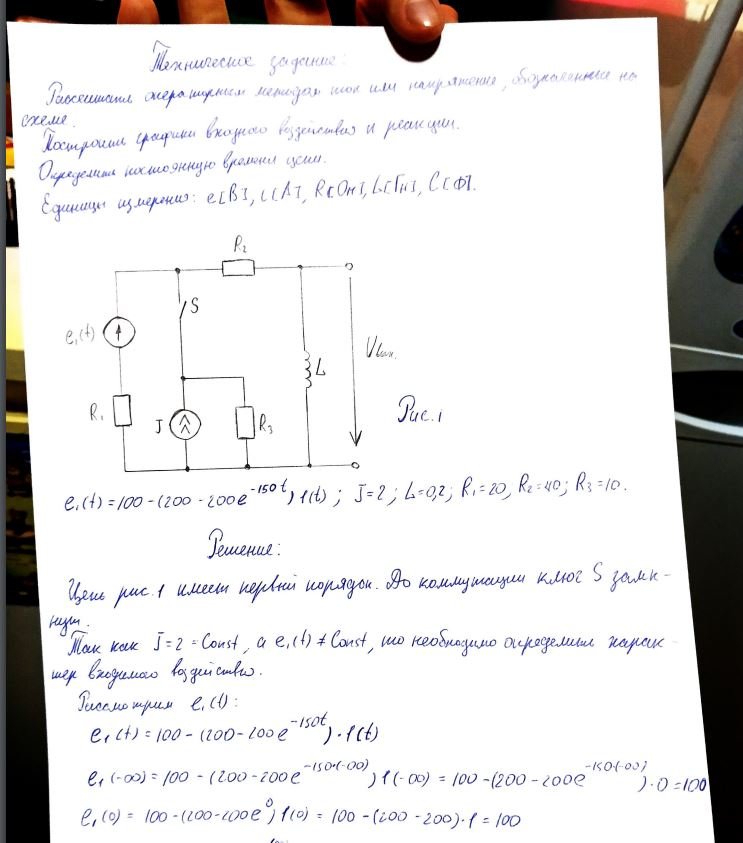 Техническое задание:
Рассчитать операторным методом ток или напряжение, обозначенные на
схеме.
Построить графики входного воздействия и реакции.
Определить постоянную времени цепи.
Единицы измерения: e[В], i[А], R[Ом], L[Гн], C[Ф].
R₂
S
e₁(t)
L
Uвых.
R₁
J
R₃
Рис.1
e₁(t) = 100 - (200 - 200e^{-150t}) 1(t) ; J=2 ; L=0,2; R₁=20, R₂=40; R₃=10.
Решение:
Цепь рис.1 имеет первый порядок. До коммутации ключ S замк-
нут.
Так как J=2=Const, а e₁(t) ≠ Const, то необходимо определить харак-
тер входного воздействия.
Рассмотрим e₁(t):
e₁(t) = 100 - (200 - 200e^{-150t}) · 1(t)
e₁(-∞) = 100 - (200 - 200e^{-150·(-∞)}) 1(-∞) = 100 - (200 - 200e^{-150·(-∞)}) · 0 = 100
e₁(0) = 100 - (200 - 200e⁰) 1(0) = 100 - (200 - 200) · 1 = 100